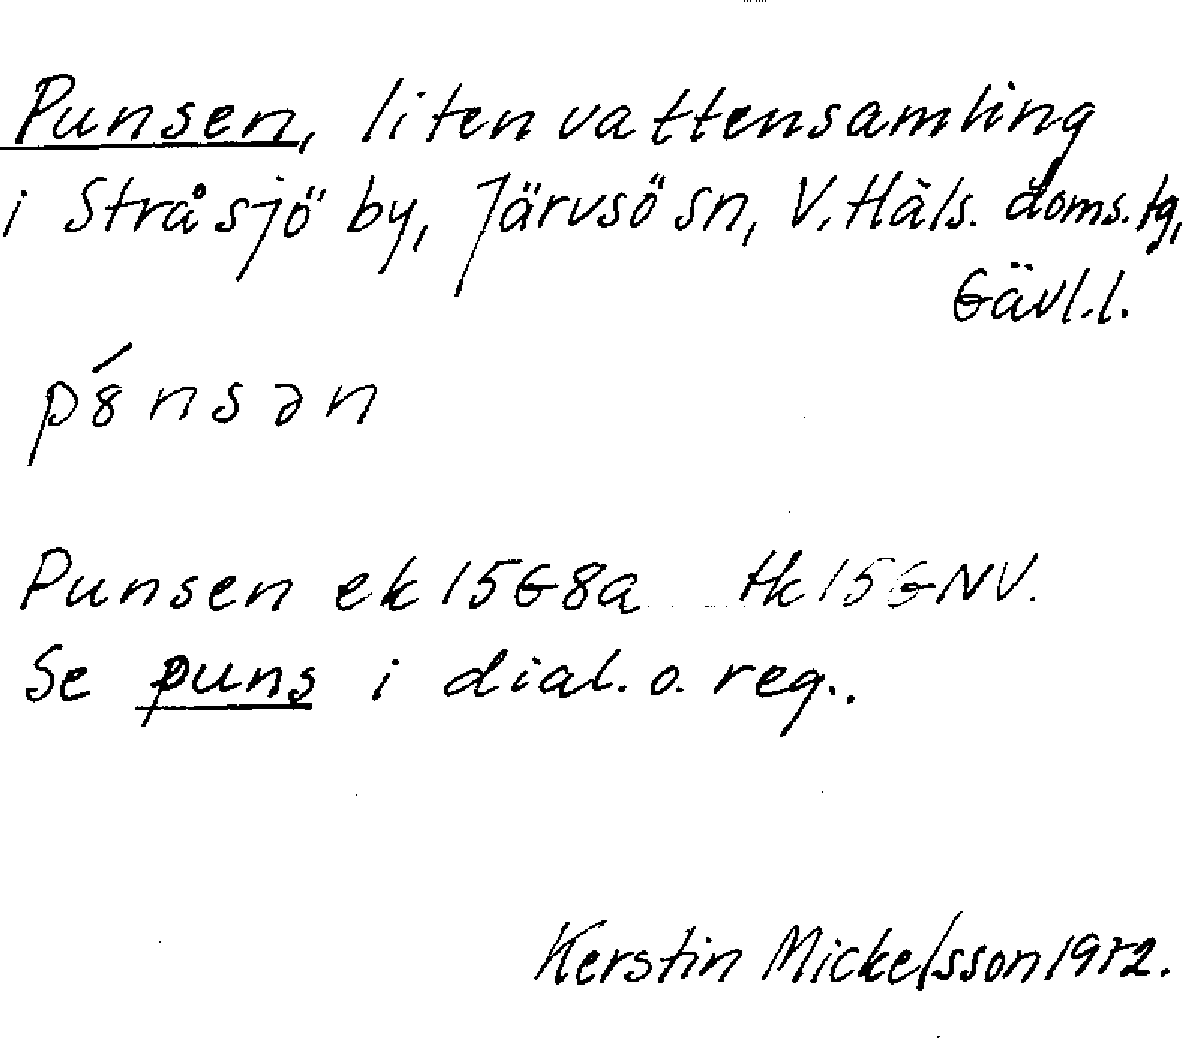 Punsen, liten vattensamling
i Stråsjö by, Järvsö sn, V. Häls. doms.tg,
Gävl.l.
pȣ́nsən
Punsen ek 15G8a tk 15GNV.
Se puns i dial. o. reg..
Kerstin Mickelsson 1972.